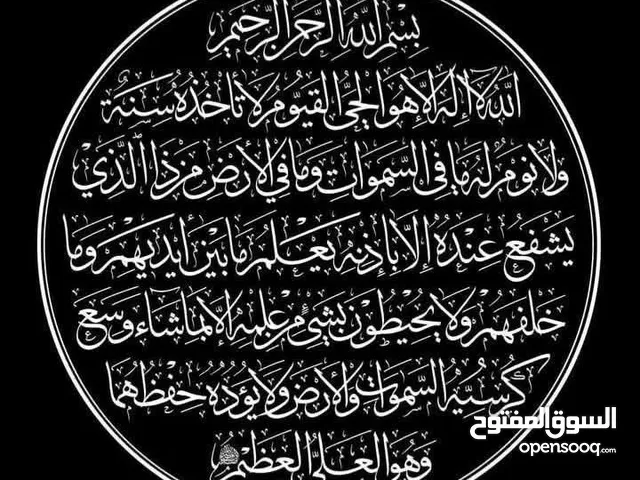 بسم الله الرحمن الرحيم
الله لا إله إلا هو الحي القيوم لا تأخذه سنة
ولا نوم له ما في السموات وما في الأرض من ذا الذي
يشفع عنده إلا بإذنه يعلم ما بين أيديهم وما
خلفهم ولا يحيطون بشيء من علمه إلا بما شاء وسع
كرسيه السموات والأرض ولا يؤده حفظهما
وهو العلي العظيم
السوق المفتوح
opensooq.com